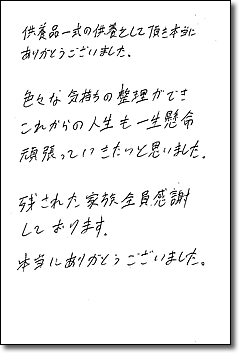 供養品一式の供養をして頂き本当に
ありがとうございました。
色々な気持ちの整理ができ
これからの人生も一生懸命
頑張っていきたいと思いました。
残された家族全員感謝
しております。
本当にありがとうございました。